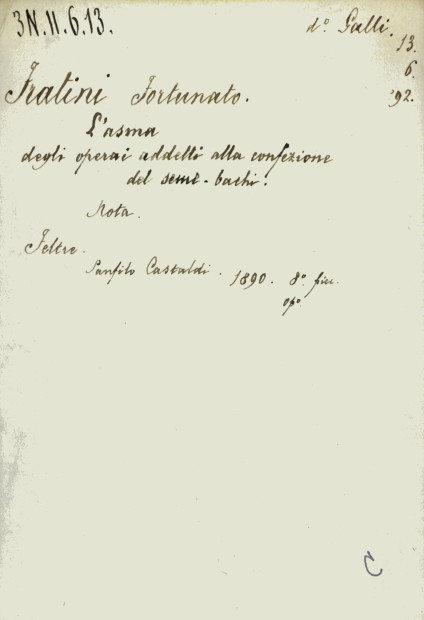 3N.11.6.13.
d.º Galli.
13.
6.
'92.
Fratini Fortunato.
L'asma
degli operai addetti alla confezione
del seme-bachi.
Nota.
Feltre.
Panfilo Castaldi. 1890. 8º. picc.
opº.
C